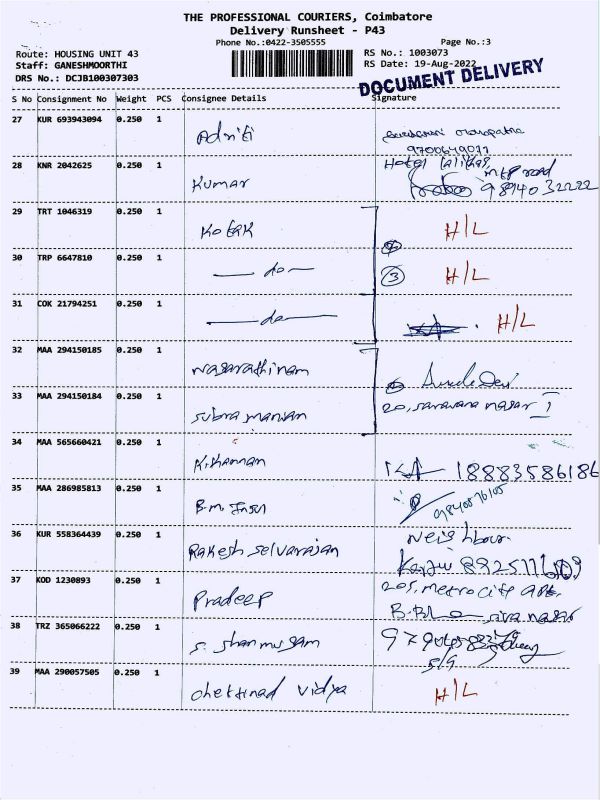 THE PROFESSIONAL COURIERS, Coimbatore
Delivery Runsheet - P43
Phone No.:0422-3505555 Page No.:3
Route: HOUSING UNIT 43 RS No.: 1003073
Staff: GANESHMOORTHI RS Date: 19-Aug-2022
DRS No.: DCJB100307303
DOCUMENT DELIVERY
S No Consignment No Weight PCS Consignee Details Signature
27 KUR 693943094 0.250 1 Adniti
28 KNR 2042625 0.250 1 Kumar Hotel mtp road
9894032222
29 TRT 1046319 0.250 1 Kotak H/L
30 TRP 6647810 0.250 1 — do — 3 H/L
31 COK 21794251 0.250 1 — do — H/L
32 MAA 294150185 0.250 1 Nagarathinam
33 MAA 294150184 0.250 1 Subramanian 20, saravana nagar
34 MAA 565660421 0.250 1 K. Kannan 18883586186
35 MAA 286985813 0.250 1 B.M.
36 KUR 558364439 0.250 1 Rakesh Selvarajan Neighbour
37 KOD 1230893 0.250 1 Pradeep 205, metrocity apt.
siva nagar
38 TRZ 365066222 0.250 1 S. Shanmugam
39 MAA 290057505 0.250 1 Chettinad Vidya H/L